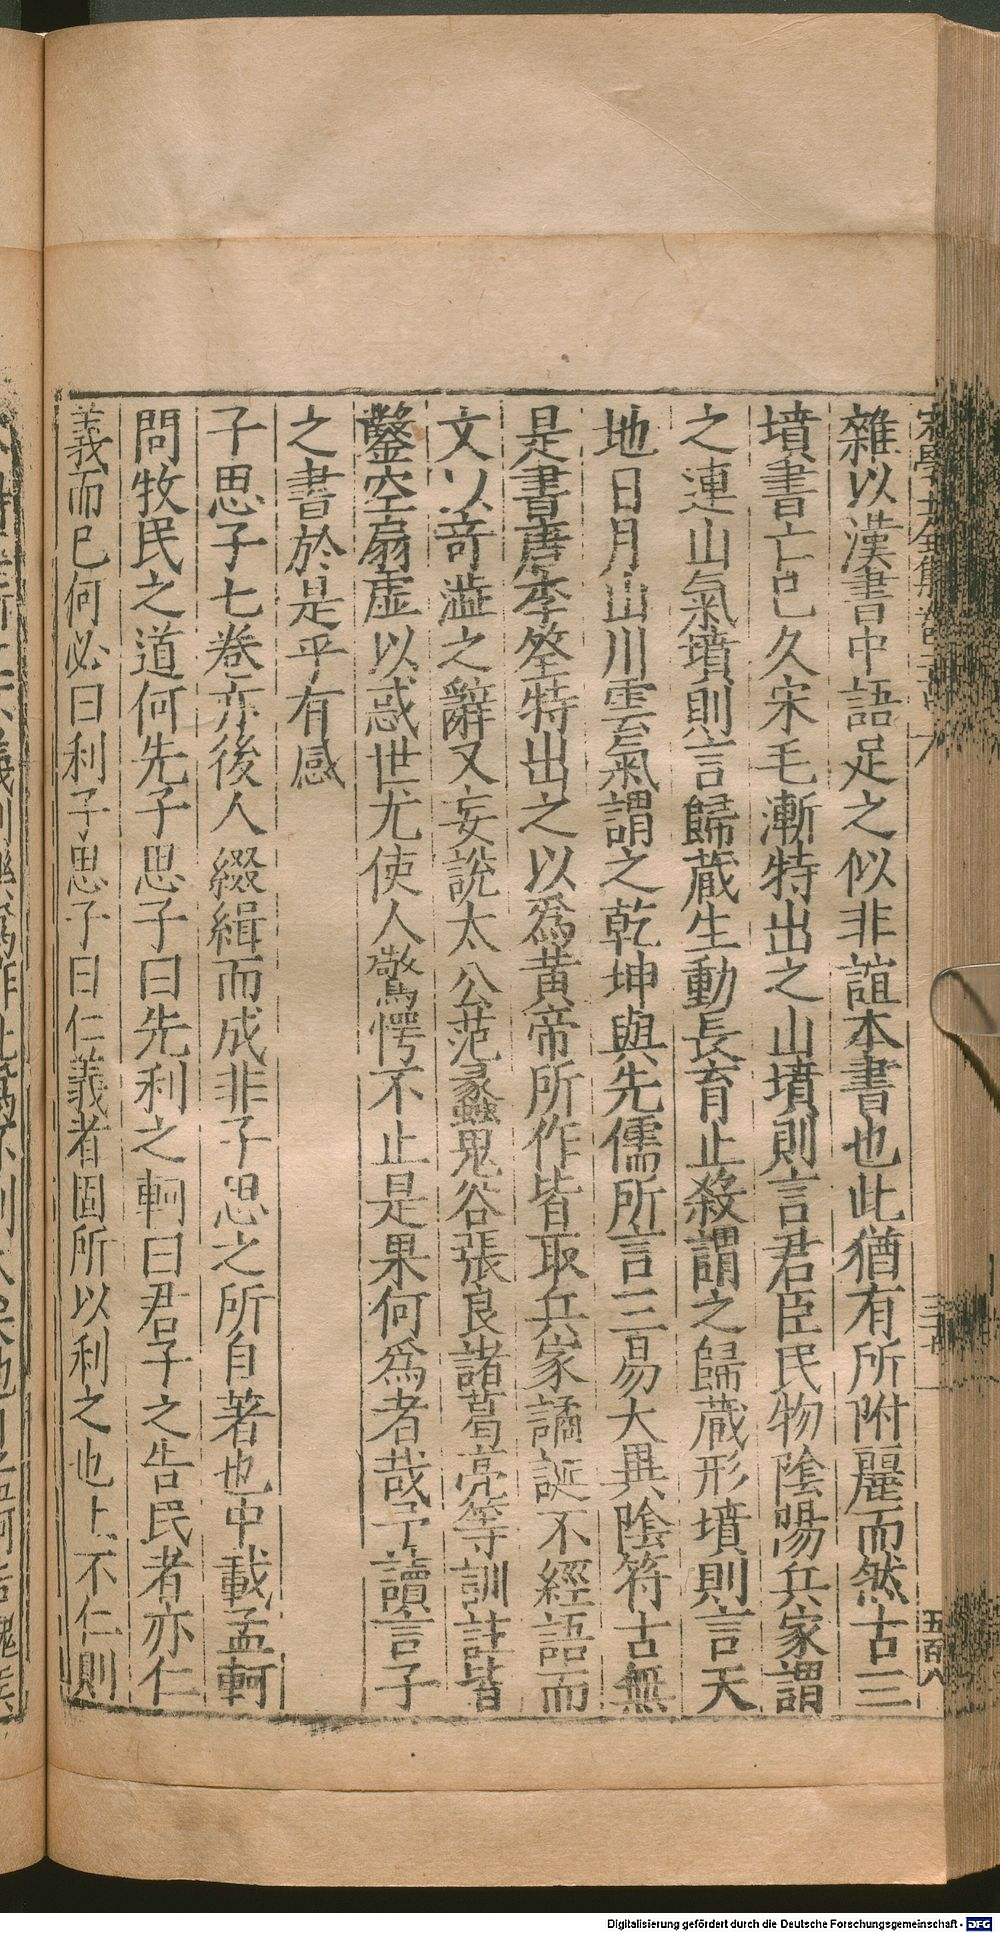 雜以漢書中語足之似非誼本書也此猶有所附麗而然古三
墳書亡已久宋毛漸特出之山墳則言君臣民物陰陽兵家謂
之連山氣墳則言歸蔵生動長育止殺謂之歸蔵形墳則言天
地日月山川雲氣謂之乾坤與先儒所言三易大異陰符古無
是書唐李筌特出之以爲黄帝所作皆取兵家譎誕不經語而
文以竒澁之辭又妄說太公范蠡鬼谷張良諸葛亮等訓註皆
鑿空扇虛以惑世尤使人驚愕不止是果何爲者哉予讀言子
之書於是乎有感
子思子七巻亦後人綴緝而成非子思之所自著也中載孟軻
問牧民之道何先子思子曰先利之軻曰君子之告民者亦仁
義而已何必曰利子思子曰仁義者固所以利之也上不仁則
五百八
Digitalisierung gefördert durch die Deutsche Forschungsgemeinschaft - DFG